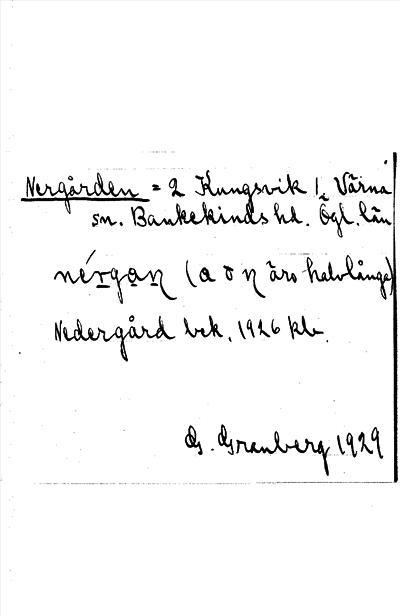 Nergården = 2 Kungsvik 1, Värna
sn. Bankekinds hd. Ögl. län
nérgan̥ (a o n äro halvlånga)
Nedergård brk. 1926 kb.
G. Granberg 1929